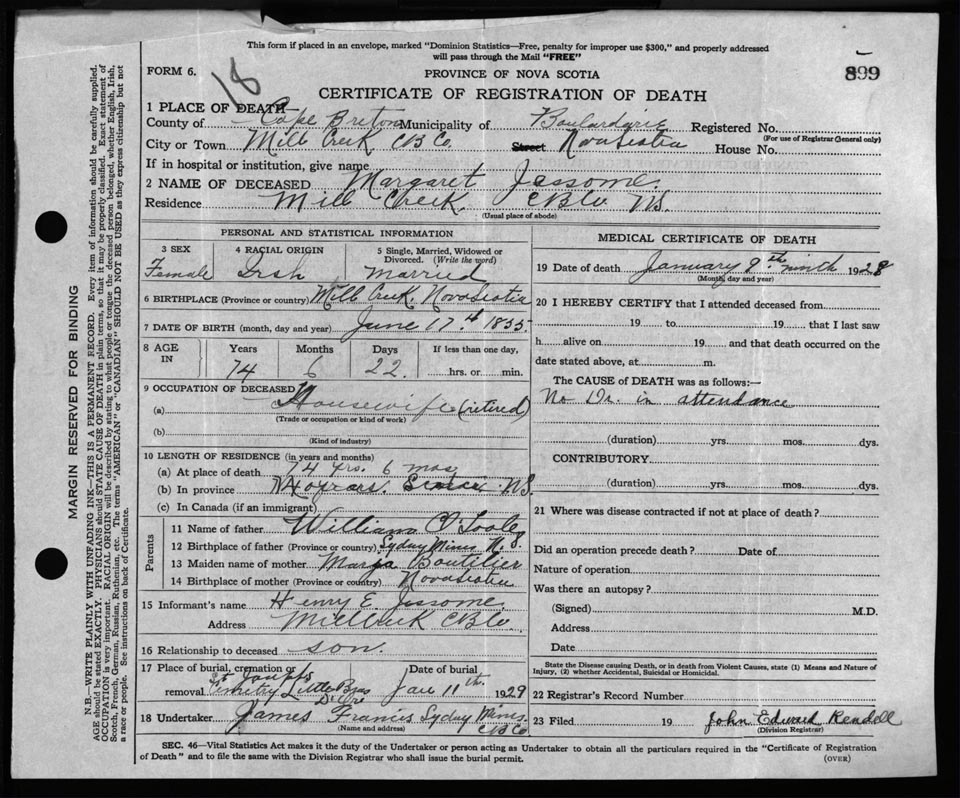 This form if placed in an envelope, marked "Dominion Statistics—Free, penalty for improper use $300," and properly addressed
will pass through the Mail "FREE"
FORM 6.
18
PROVINCE OF NOVA SCOTIA
899
CERTIFICATE OF REGISTRATION OF DEATH
1 PLACE OF DEATH—
County of Cape Breton Municipality of Boulardrie Registered No.
(For use of Registrar General only)
City or Town Mill Creek CB Co. Street Nova Scotia House No.
If in hospital or institution, give name
2 NAME OF DECEASED Margaret Jessome.
Residence Mill Creek CB Co NS.
(Usual place of abode)
PERSONAL AND STATISTICAL INFORMATION
3 SEX 4 RACIAL ORIGIN 5 Single, Married, Widowed or Divorced. (Write the word)
Female Irsh married
6 BIRTHPLACE (Province or country) Mill Creek, Nova Scotia
7 DATE OF BIRTH (month, day and year) June 17th 1855.
8 AGE IN Years Months Days If less than one day,
74 6 22 hrs. or min.
9 OCCUPATION OF DECEASED
(a) Housewife (retired)
(Trade or occupation or kind of work)
(b)
(Kind of industry)
10 LENGTH OF RESIDENCE (in years and months)
(a) At place of death 74 yrs. 6 mos
(b) In province NS.
(c) In Canada (if an immigrant)
Parents
11 Name of father William O'Toole
12 Birthplace of father (Province or country) Sydney Mines N.S.
13 Maiden name of mother Boutilier
14 Birthplace of mother (Province or country) Nova Scotia
15 Informant's name Henry E Jessome.
Address Mill Creek CB Co.
16 Relationship to deceased son.
17 Place of burial, cremation or removal St Josephs Cemetry Little Bras D'Or
Date of burial Jan 11th 1929
18 Undertaker James Francis Sydny Mines CB Co
(Name and address)
MEDICAL CERTIFICATE OF DEATH
19 Date of death January 9th ninth 1928
(Month, day and year)
20 I HEREBY CERTIFY that I attended deceased from
19 to 19 that I last saw
h alive on 19 and that death occurred on the
date stated above, at m.
The CAUSE of DEATH was as follows:—
No Dr. in attendance
(duration) yrs. mos. dys.
CONTRIBUTORY
(duration) yrs. mos. dys.
21 Where was disease contracted if not at place of death?
Did an operation precede death? Date of
Nature of operation
Was there an autopsy?
(Signed) M.D.
Address
Date
State the Disease causing Death, or in death from Violent Causes, state (1) Means and Nature of
Injury, (2) whether Accidental, Suicidal or Homicidal.
22 Registrar's Record Number
23 Filed 19 John Edward Rendell
(Division Registrar)
SEC. 46—Vital Statistics Act makes it the duty of the Undertaker or person acting as Undertaker to obtain all the particulars required in the "Certificate of Registration
of Death" and to file the same with the Division Registrar who shall issue the burial permit.
(OVER)
MARGIN RESERVED FOR BINDING
N.B.—WRITE PLAINLY WITH UNFADING INK—THIS IS A PERMANENT RECORD. Every item of information should be carefully supplied.
AGE should be stated EXACTLY. PHYSICIANS should STATE CAUSE OF DEATH in plain terms, so that it may be properly classified. Exact statement of
OCCUPATION is very important. RACIAL ORIGIN will be described by stating to what people or tongue the deceased person belonged, whether English, Irish,
Scotch, French, German, Russian, Ruthenian, etc. The terms "AMERICAN" or "CANADIAN" SHOULD NOT BE USED as they express citizenship but not
a race or people. See instructions on back of Certificate.